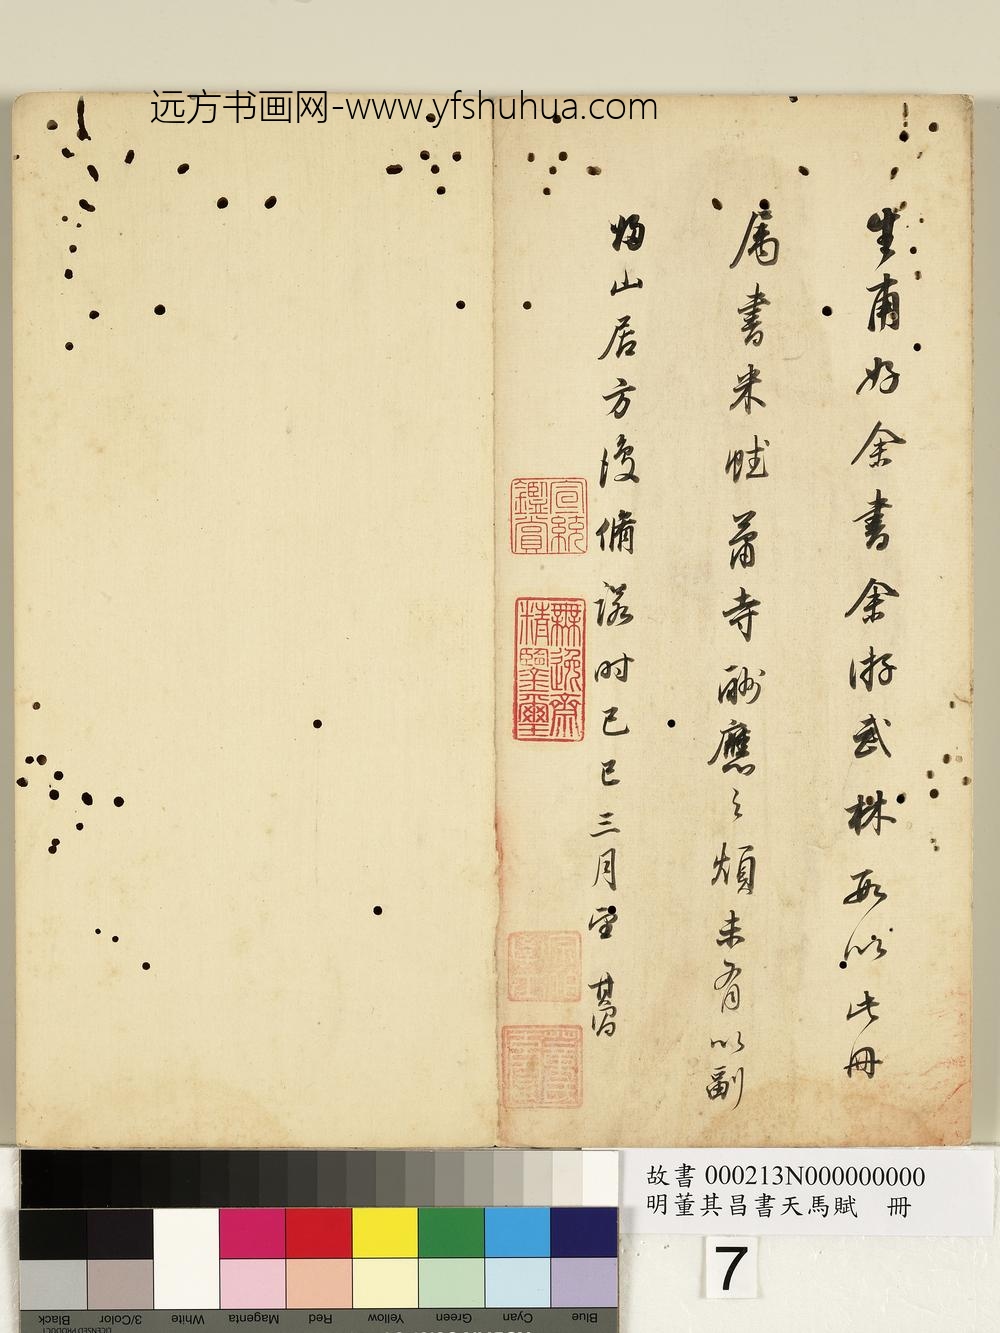 远方书画网-www.yfshuhua.com
生甫好余書余游武林每以此冊
属書米賦蕭寺酬應之煩未有以副
歸山居方復備諾時己巳三月望 其昌
宣統
鑑賞
無逸齋
精鑒璽
故書 000213N000000000
明董其昌書天馬賦 冊
7
Black
3/Color
White
Magenta
Red
Yellow
Green
Cyan
Blue
LICENSED PRODUCT